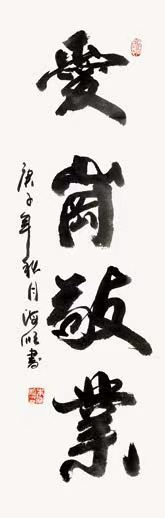 愛崗敬業
庚子年秋月海旺書